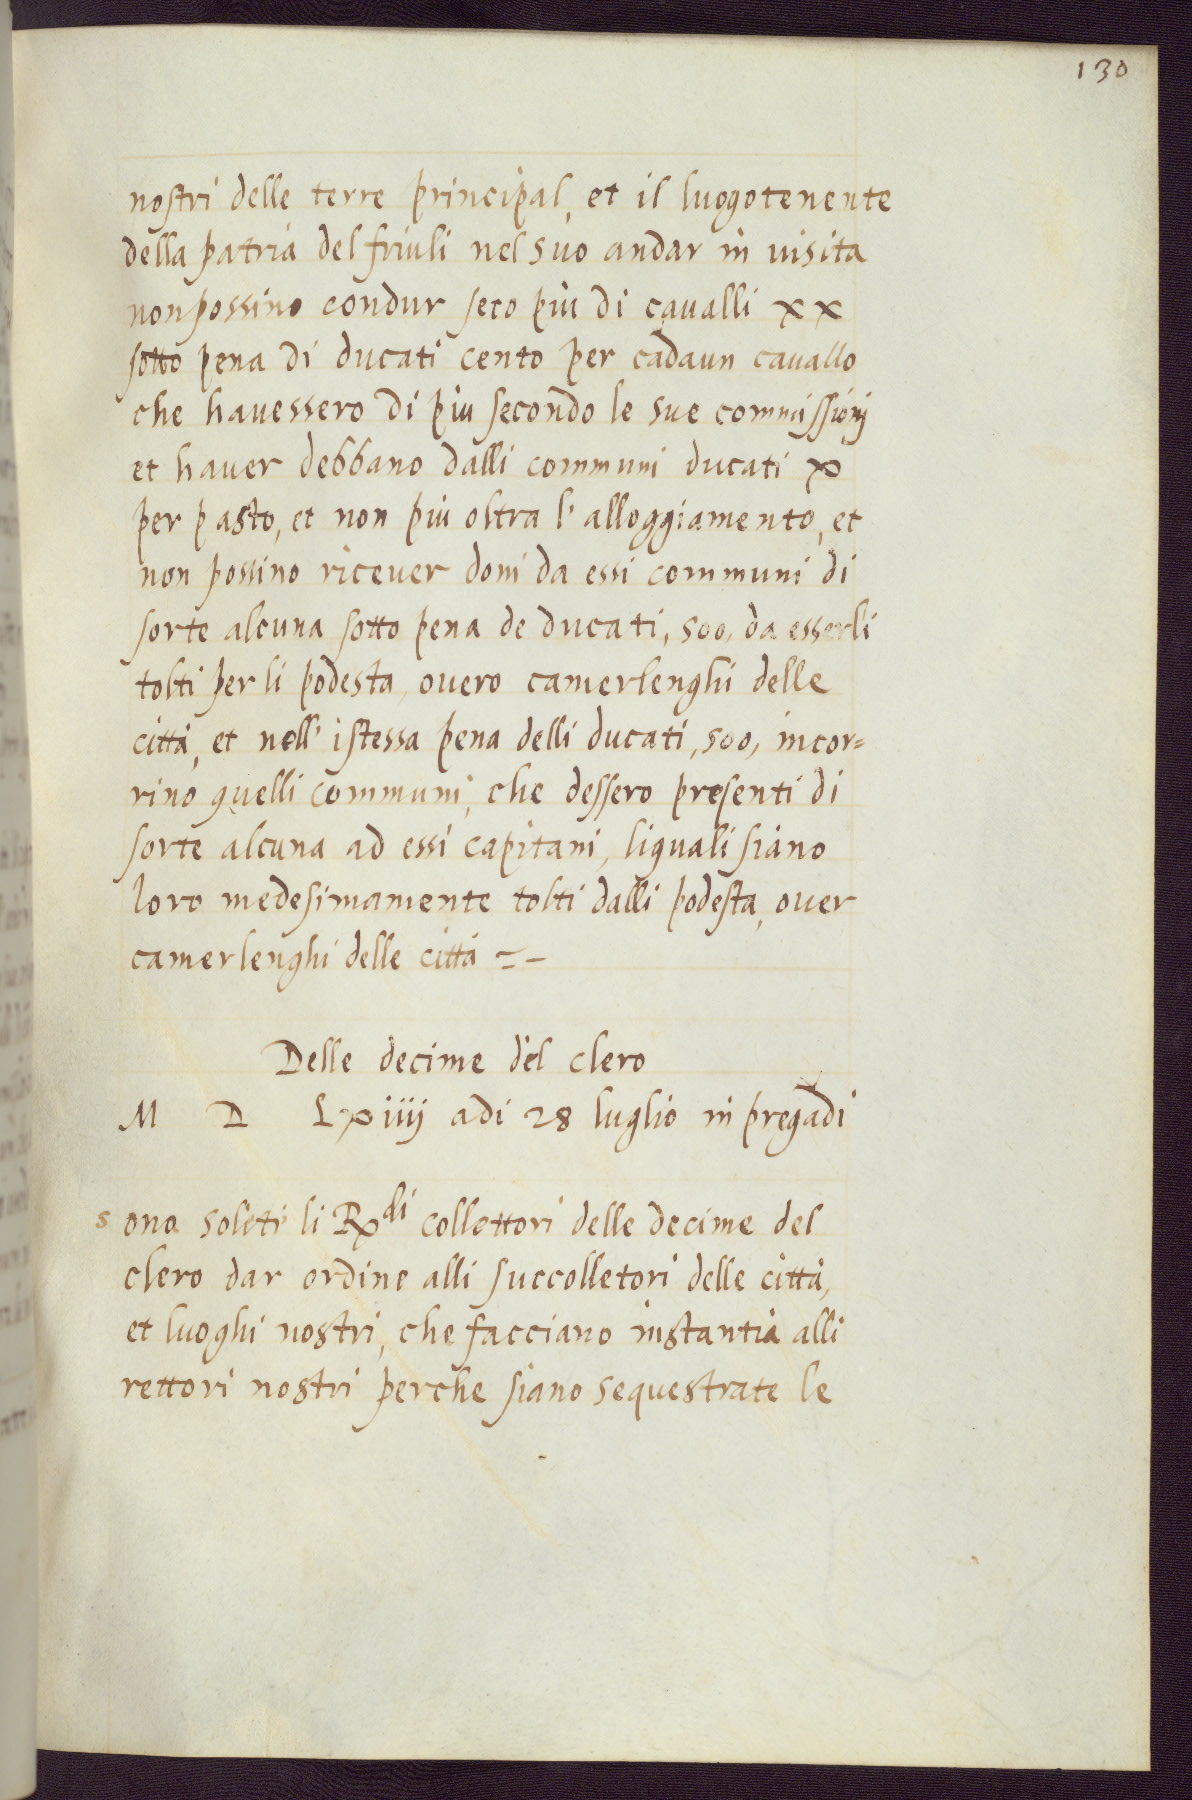 130
nostri delle terre principal, et il luogotenente
della patria del friuli nel suo andar in uisita
non possino condur seco più di cavalli xx
sotto pena di ducati cento per cadaun cauallo
che hauessero di più secondo le sue commissionj
et hauer debbano dalli communi ducati x
per pasto, et non più oltra l'alloggiamento, et
non possino riceuer doni da essi communi di
sorte alcuna sotto pena de ducati, 500, da esserli
tolti per li podesta, ouero camerlenghi delle
città, et nell'istessa pena delli ducati, 500, incor=
rino quelli communi, che dessero presenti di
sorte alcuna ad essi capitani, liquali siano
loro medesimamente tolti dalli podesta, ouer
camerlenghi delle città =-
Delle decime del clero
M D Lxiiij adi 28 luglio in pregadi
sono soleti li R.di collettori delle decime del
clero dar ordine alli succolletori delle città,
et luoghi nostri, che facciano instantia alli
rettori nostri perche siano sequestrate le